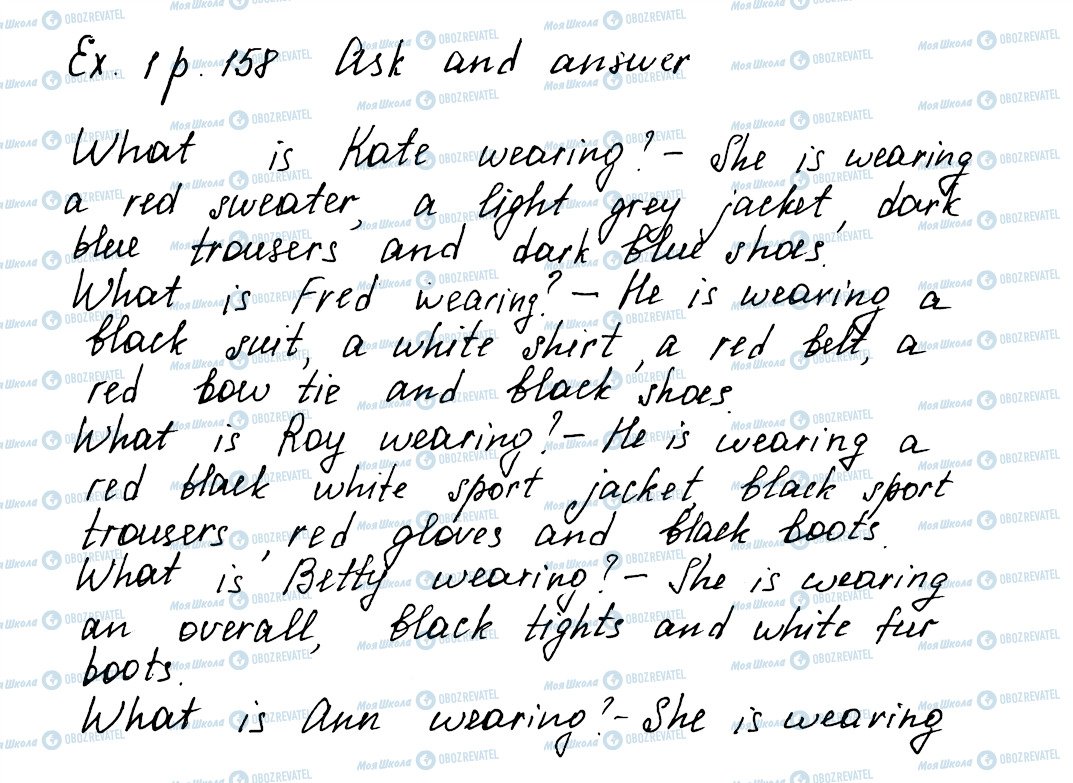 Ex. 1 p. 158 Ask and answer
What is Kate wearing? – She is wearing
a red sweater, a light grey jacket, dark
blue trousers and dark blue shoes.
What is Fred wearing? – He is wearing a
black suit, a white shirt, a red belt, a
red bow tie and black shoes.
What is Roy wearing? – He is wearing a
red black white sport jacket, black sport
trousers, red gloves and black boots.
What is Betty wearing? – She is wearing
an overall, black tights and white fur
boots.
What is Ann wearing? – She is wearing